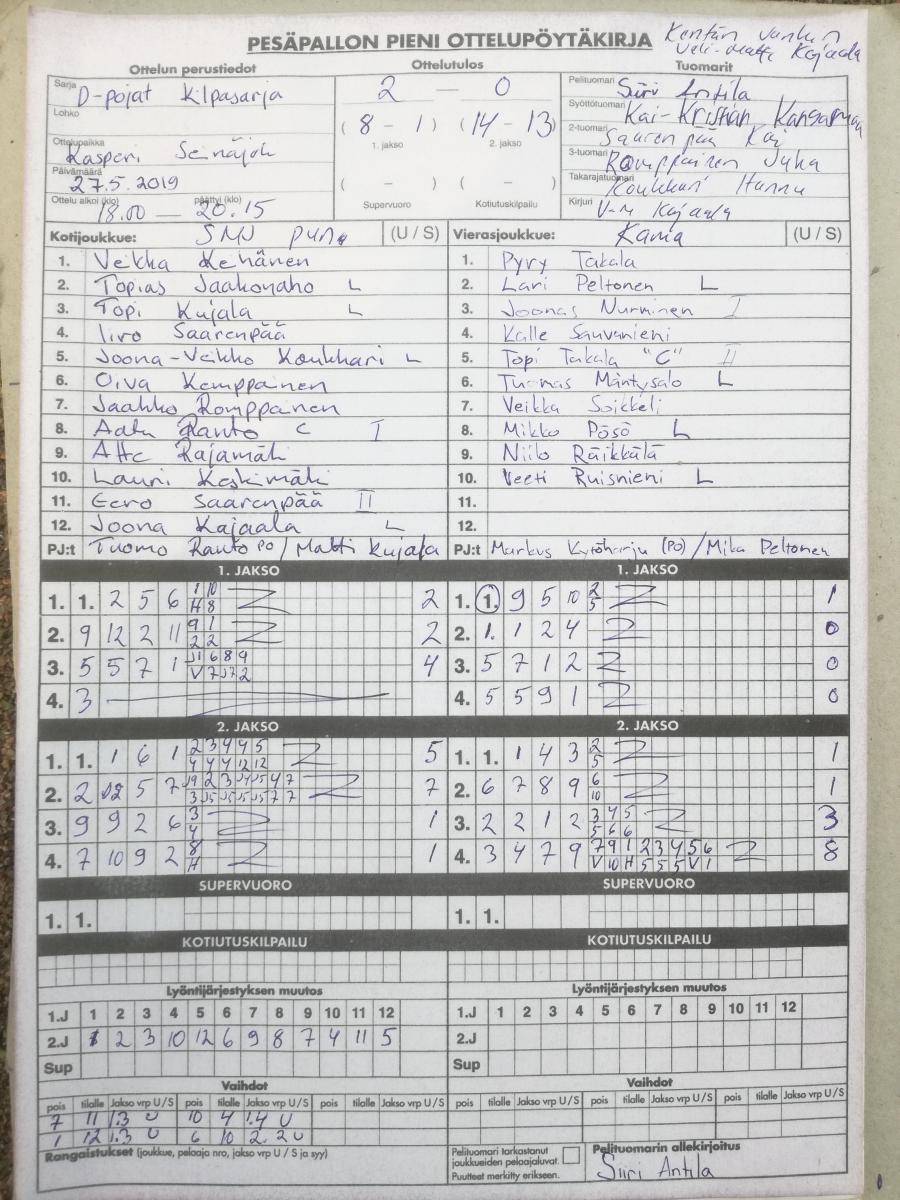 PESÄPALLON PIENI OTTELUPÖYTÄKIRJA
Veli-Matti Kajaala
Ottelun perustiedot Ottelutulos Tuomarit
Sarja D-pojat Kilpasarja
2 — 0
Pelituomari Siiri Antila
Lohko
( 8 - 1 ) ( 14 - 13 )
1. jakso 2. jakso
Syöttötuomari Kai-Kristian
2-tuomari Saarenpää Kai
Ottelupaikka Kasperi Seinäjoki
3-tuomari Romppainen Juha
Päivämäärä 27.5.2019
( - ) ( - )
Supervuoro Kotiutuskilpailu
Takarajatuomari Koukkari Hannu
Ottelu alkoi (klo) 18.00 — päättyi (klo) 20.15
Kirjuri V-M Kajaala
Kotijoukkue: SMJ Puna (U / S) Vierasjoukkue: Kama (U / S)
1. Veikka Kehänen 1. Pyry Takala
2. Topias Jaakonaho L 2. Lari Peltonen L
3. Topi Kujala L 3. Joonas Nurminen I
4. Iiro Saarenpää 4. Kalle Sauvanieni
5. Joona-Veikko Koukkari L 5. Topi Takala "C" II
6. Oiva Kemppainen 6. Tuomas Mäntysalo L
7. Jaakko Romppainen 7. Veikka Soikkeli
8. Aatu Rauto C I 8. Mikko Pösö L
9. Atte Rajamäki 9. Niilo Räikkälä
10. Lauri Keskimäki 10. Veeti Ruisnieni L
11. Eero Saarenpää II 11.
12. Joona Kajaala L 12.
PJ:t Tuomo Rauto PO / Matti Kujala PJ:t Markus Kytöharju (PO) / Mika Peltonen
1. JAKSO 1. JAKSO
1. 1. 2 5 6 1 10 2 1. 1. 9 5 10 2 1
H 8 5
2. 9 12 2 11 9 1 2 2. 1. 1 2 4 0
2 2
3. 5 5 7 1 J1 6 8 9 4 3. 5 7 1 2 0
V 7 J7 2
4. 3 4. 5 5 9 1 0
2. JAKSO 2. JAKSO
1. 1. 1 6 1 2 3 4 4 5 5 1. 1. 1 4 3 2 1
4 4 4 12 12 5
2. 2 12 5 7 J9 2 3 J4 J5 4 7 7 2. 6 7 8 9 6 1
3 J5 J5 J5 J5 7 7 10
3. 9 9 2 6 3 1 3. 2 2 1 2 3 4 5 3
4 5 6 6
4. 7 10 9 2 8 1 4. 3 4 7 9 7 9 1 2 3 4 5 6 8
H V 10 H 5 5 5 V 1
SUPERVUORO SUPERVUORO
1. 1. 1. 1.
KOTIUTUSKILPAILU KOTIUTUSKILPAILU
Lyöntijärjestyksen muutos Lyöntijärjestyksen muutos
1.J 1 2 3 4 5 6 7 8 9 10 11 12 1.J 1 2 3 4 5 6 7 8 9 10 11 12
2.J 1 2 3 10 12 6 9 8 7 4 11 5 2.J
Sup Sup
Vaihdot Vaihdot
pois tilalle Jakso vrp U / S pois tilalle Jakso vrp U / S pois tilalle Jakso vrp U / S pois tilalle Jakso vrp U / S pois tilalle Jakso vrp U / S pois tilalle Jakso vrp U / S
7 11 1.3 U 10 4 1.4 U
1 12 1.3 U 6 10 2.2 U
Rangaistukset (joukkue, pelaaja nro, jakso vrp U / S ja syy)
Pelituomari tarkastanut
joukkueiden pelaajaluvat.
Puutteet merkitty erikseen.
Pelituomarin allekirjoitus
Siiri Antila